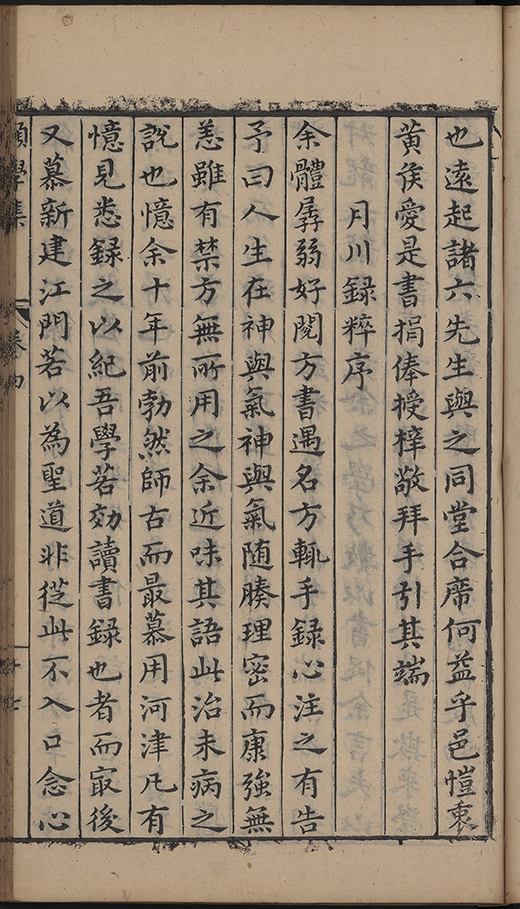 也遠起諸六先生與之同堂合席何益乎邑愷裏
黃侯愛是書捐俸授梓敬拜手引其端
月川録粹序
余體孱弱好閱方書遇名方輒手録心注之有告
予曰人生在神與氣神與氣随腠理密而康強無
恙雖有禁方無所用之余近味其語此治未病之
說也憶余十年前勃然師古而最慕用河津凢有
憶見悉録之以紀吾學若効讀書録也者而㝡後
又慕新建江門若以為聖道非從此不入口念心
學集
卷四
十七